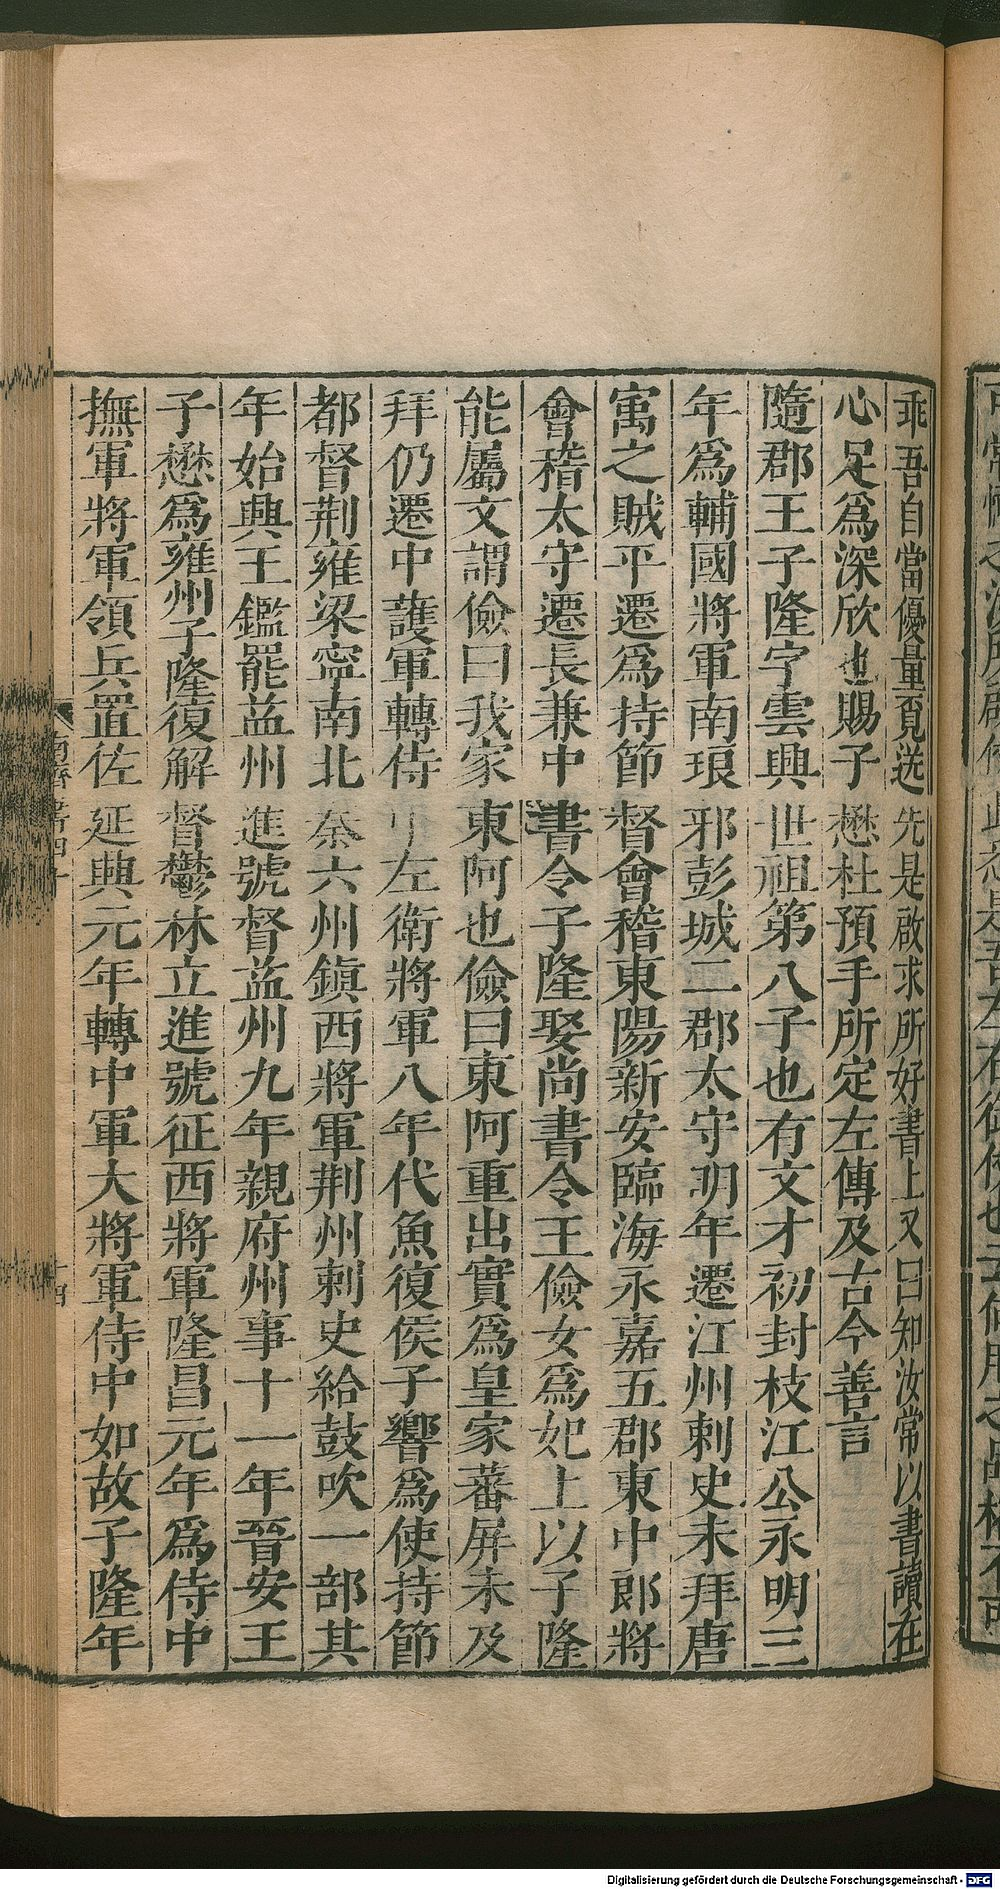 乖吾自當優量覔送先是啟求所好書上又曰知汝常以書讀在
心足爲深欣也賜子懋杜預手所定左傳及古今善言
隨郡王子隆字雲興世祖第八子也有文才初封枝江公永明三
年爲輔國將軍南琅邪彭城二郡太守明年遷江州刺史未拜唐
㝢之賊平遷爲持節督會稽東陽新安臨海永嘉五郡東中郎將
會稽太守遷長兼中書令子隆娶尚書令王儉女爲妃上以子隆
能屬文謂儉曰我家東阿也儉曰東阿重出實爲皇家蕃屏未及
拜仍遷中護軍轉侍中左衛將軍八年代魚復侯子響爲使持節
都督荆雍梁寧南北秦六州鎭西將軍荆州刺史給鼓吹一部其
年始興王鑑罷益州進號督益州九年親府州事十一年晉安王
子懋爲雍州子隆復解督鬱林立進號征西將軍隆昌元年爲侍中
撫軍將軍領兵置佐延興元年轉中軍大將軍侍中如故子隆年
南齊書四十
十四
Digitalisierung gefördert durch die Deutsche Forschungsgemeinschaft - DFG